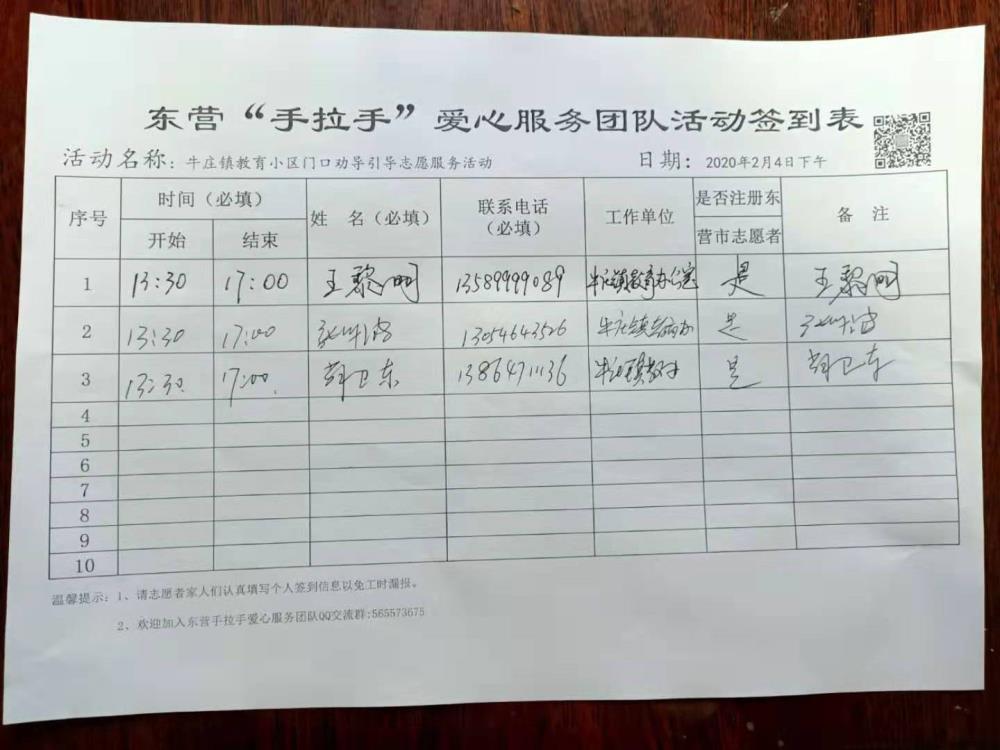 东营“手拉手”爱心服务团队活动签到表
活动名称：牛庄镇教育小区门口劝导引导志愿服务活动 日期：2020年2月4日下午
序号 时间（必填） 姓 名（必填） 联系电话（必填） 工作单位 是否注册东营市志愿者 备 注
开始 结束
1 13:30 17:00 王黎明 13589999089 牛庄镇教育办公室 是 王黎明
2 13:30 17:00 13054643526 牛庄镇 是
3 13:30 17:00 卫东 13864711136 牛庄镇 是 卫东
4
5
6
7
8
9
10
温馨提示：1、请志愿者家人们认真填写个人签到信息以免工时漏报。
2、欢迎加入东营手拉手爱心服务团队QQ交流群:565573675